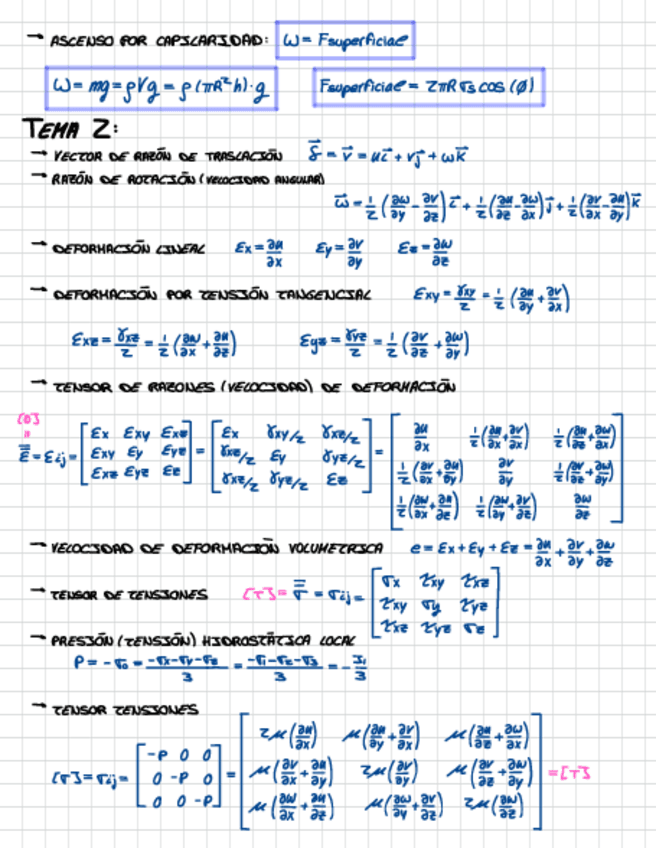 → ASCENSO POR CAPILARIDAD: ω = Fsuperficial
ω = mg = ρVg = ρ(πR²h)·g    Fsuperficial = 2πRσs cos(ϕ)
TEMA 2:
→ VECTOR DE RAZÓN DE TRASLACIÓN  δ⃗ = v⃗ = ui⃗ + vj⃗ + ωk⃗
→ RAZÓN DE ROTACIÓN (VELOCIDAD ANGULAR)
ω⃗ = 1/2 (∂ω/∂y - ∂v/∂z) i⃗ + 1/2 (∂u/∂z - ∂ω/∂x) j⃗ + 1/2 (∂v/∂x - ∂u/∂y) k⃗
→ DEFORMACIÓN LINEAL  εx = ∂u/∂x  εy = ∂v/∂y  εz = ∂ω/∂z
→ DEFORMACIÓN POR TENSIÓN TANGENCIAL  εxy = γxy/2 = 1/2 (∂u/∂y + ∂v/∂x)
εxz = γxz/2 = 1/2 (∂ω/∂x + ∂u/∂z)  εyz = γyz/2 = 1/2 (∂v/∂z + ∂ω/∂y)
→ TENSOR DE RAZONES (VELOCIDAD) DE DEFORMACIÓN
[D]
=
ε = εij = [εx εxy εxz; εxy εy εyz; εxz εyz εz] = [εx γxy/2 γxz/2; γxz/2 εy γyz/2; γxz/2 γyz/2 εz] = [∂u/∂x 1/2(∂u/∂y + ∂v/∂x) 1/2(∂u/∂z + ∂ω/∂x); 1/2(∂v/∂x + ∂u/∂y) ∂v/∂y 1/2(∂v/∂z + ∂ω/∂y); 1/2(∂ω/∂x + ∂u/∂z) 1/2(∂ω/∂y + ∂v/∂z) ∂ω/∂z]
→ VELOCIDAD DE DEFORMACIÓN VOLUMETRICA  e = εx + εy + εz = ∂u/∂x + ∂v/∂y + ∂ω/∂z
→ TENSOR DE TENSIONES  [τ] = σ = σij = [σx τxy τxz; τxy σy τyz; τxz τyz σz]
→ PRESIÓN (TENSIÓN) HIDROSTÁTICA LOCAL
P = -σ0 = (-σx-σy-σz)/3 = (-σ1-σ2-σ3)/3 = -I1/3
→ TENSOR TENSIONES
[τ] = σij = [-P 0 0; 0 -P 0; 0 0 -P] = [2μ(∂u/∂x) μ(∂u/∂y + ∂v/∂x) μ(∂u/∂z + ∂ω/∂x); μ(∂v/∂x + ∂u/∂y) 2μ(∂v/∂y) μ(∂v/∂z + ∂ω/∂y); μ(∂ω/∂x + ∂u/∂z) μ(∂ω/∂y + ∂v/∂z) 2μ(∂ω/∂z)] = [τ]